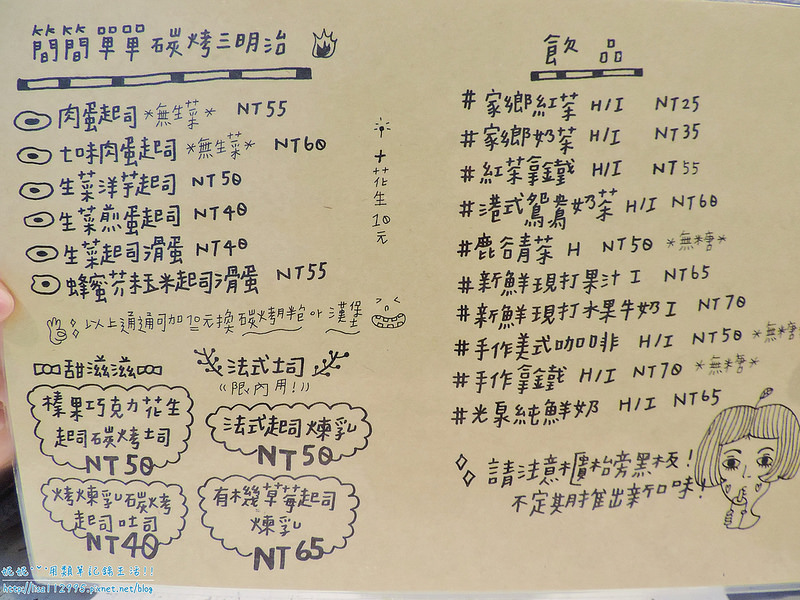 簡簡單單碳烤三明治
肉蛋起司 *無生菜* NT55
七味肉蛋起司 *無生菜* NT60
生菜洋芋起司 NT50
生菜煎蛋起司 NT40
生菜起司滑蛋 NT40
蜂蜜芥末玉米起司滑蛋 NT55
+花生10元
以上通通可加10元換碳烤刈包 or 漢堡
甜滋滋
榛果巧克力花生
起司碳烤土司
NT50
烤煉乳碳烤
起司吐司
NT40
法式土司
((限內用!))
法式起司煉乳
NT50
有機草莓起司
煉乳
NT65
飲品
#家鄉紅茶 H/I NT25
#家鄉奶茶 H/I NT35
#紅茶拿鐵 H/I NT55
#港式鴛鴦奶茶 H/I NT60
#鹿谷青茶 H NT50 *無糖*
#新鮮現打果汁 I NT65
#新鮮現打水果牛奶 I NT70
#手作美式咖啡 H/I NT50 *無糖*
#手作拿鐵 H/I NT70 *無糖*
#光泉純鮮奶 H/I NT65
請注意櫃枱旁黑板!
不定期推出新口味!